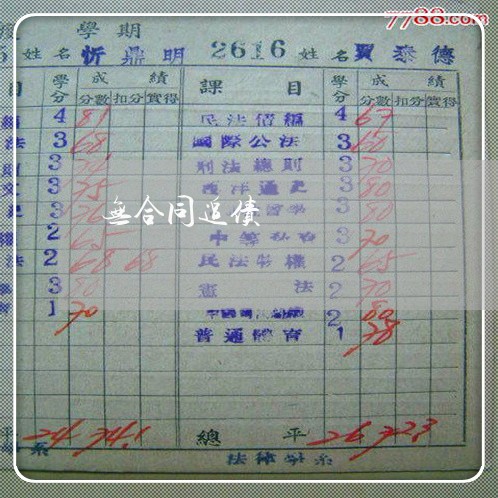 7788.com
學期
5 姓名 忻鼎明 2616 姓名 賈泰德
目 學分 成績 課目 學分 成績
分數 扣分 實得 分數 扣分 實得
4 81 民法債編 4 67
法 3 68 國際公法 3 60
3 刑法總則 3 70
3 75 西洋通史 3 80
3 76 3 80
無合同追債
權 2 65 3 70
法 2 68 68 民法物權 2 65
3 80 憲法 2 70
1 70 2 80
普通體育 1 78
平 24 74.1 總平 26 72.3
系 法律學系